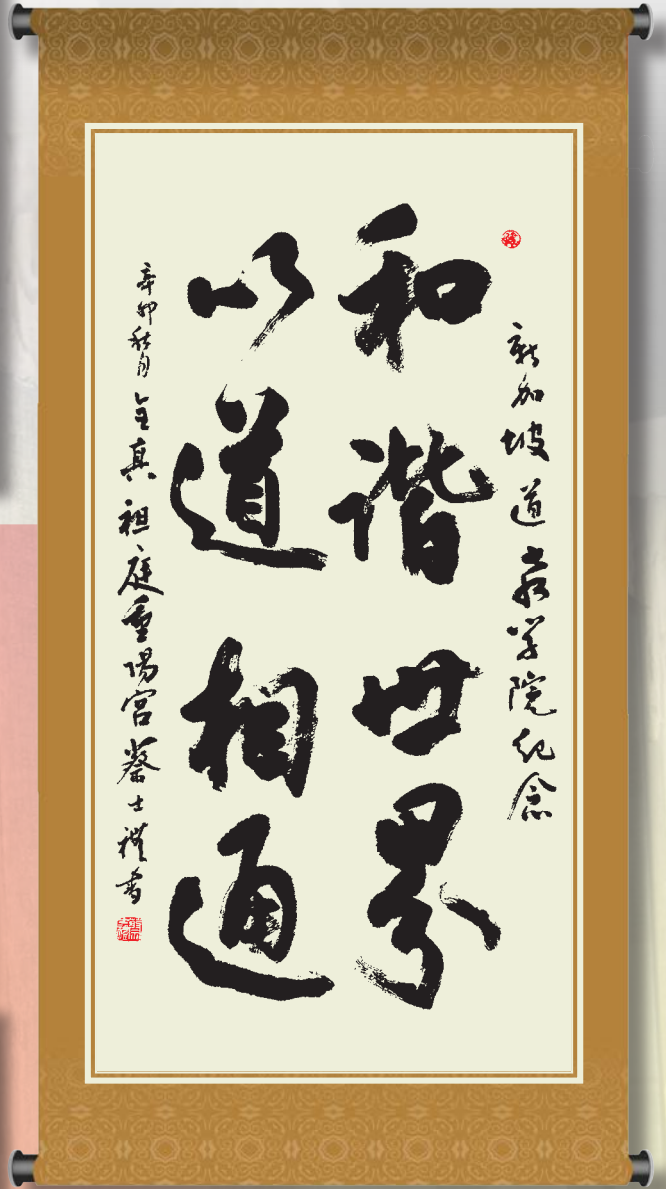 新加坡道教学院纪念
和谐世界
以道相通
辛卯秋月全真祖庭重陽宮 士 書